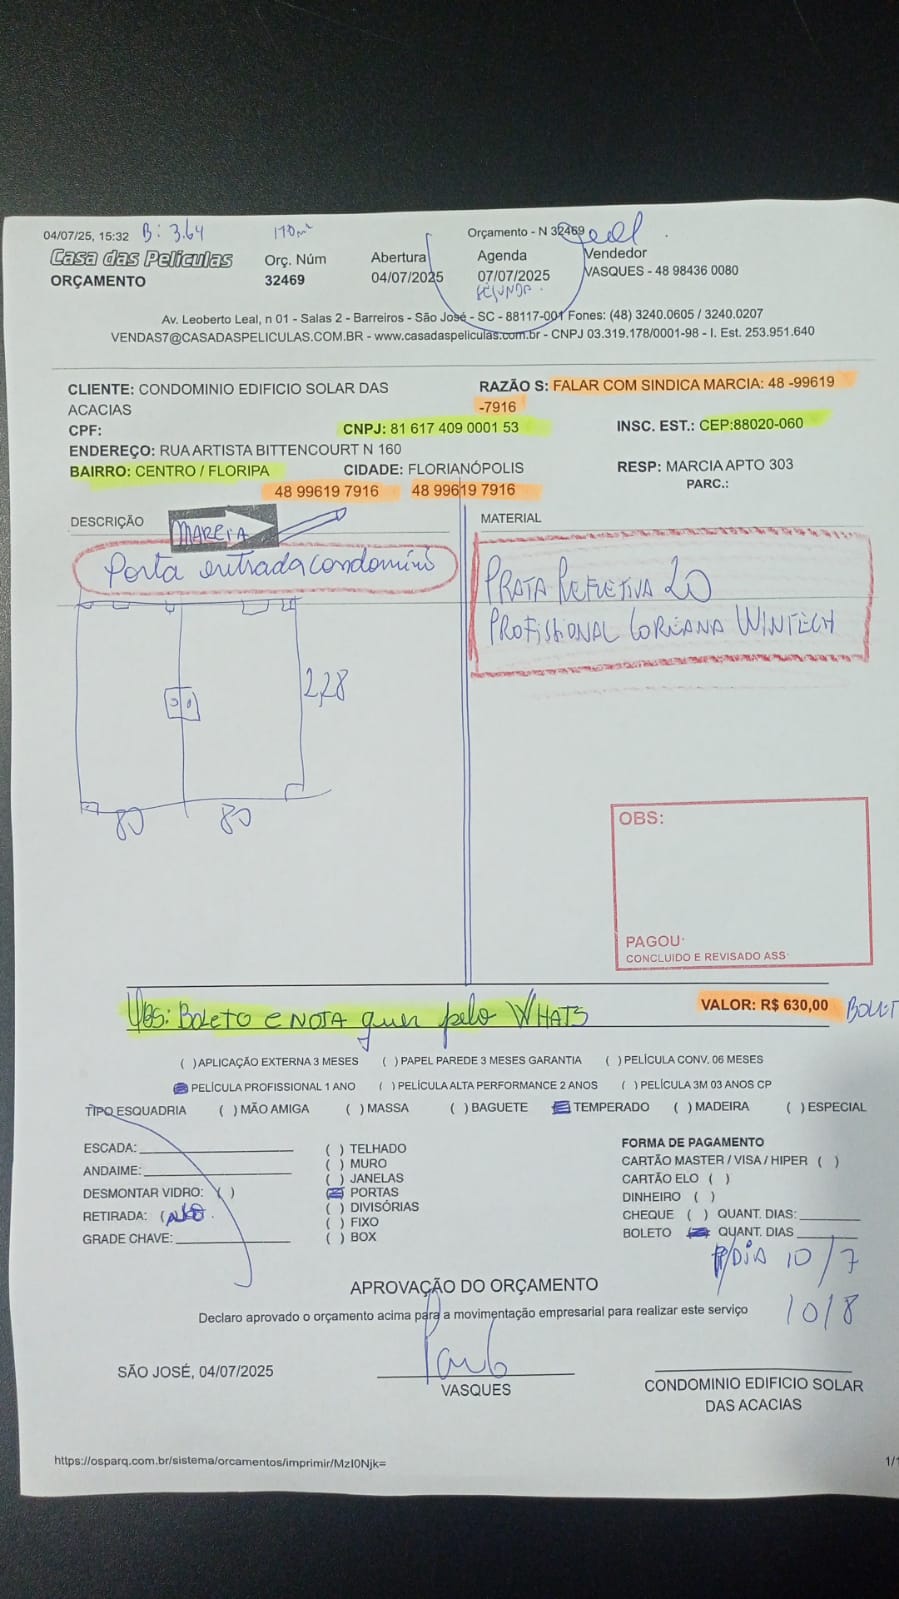 04/07/25, 15:32 B: 3.64 170m² Orçamento - N 32469
Casa das Películas Orç. Núm Abertura Agenda Vendedor
ORÇAMENTO 32469 04/07/2025 07/07/2025 VASQUES - 48 98436 0080
SEGUNDA
Av. Leoberto Leal, n 01 - Salas 2 - Barreiros - São José - SC - 88117-001 Fones: (48) 3240.0605 / 3240.0207
VENDAS7@CASADASPELICULAS.COM.BR - www.casadaspeliculas.com.br - CNPJ 03.319.178/0001-98 - I. Est. 253.951.640
CLIENTE: CONDOMINIO EDIFICIO SOLAR DAS ACACIAS
RAZÃO S: FALAR COM SINDICA MARCIA: 48 -99619 -7916
CPF: CNPJ: 81 617 409 0001 53 INSC. EST.: CEP:88020-060
ENDEREÇO: RUA ARTISTA BITTENCOURT N 160
BAIRRO: CENTRO / FLORIPA CIDADE: FLORIANÓPOLIS RESP: MARCIA APTO 303
48 99619 7916 48 99619 7916 PARC.:
DESCRIÇÃO MARCIA MATERIAL
Porta entrada condominio
PRATA REFLETIVA 20
PROFISSIONAL COREANA WINTECH
2,28
80 80
OBS:
PAGOU:
CONCLUIDO E REVISADO ASS
VALOR: R$ 630,00 BOLET
OBS: BOLETO E NOTA quer pelo WHATS
( ) APLICAÇÃO EXTERNA 3 MESES ( ) PAPEL PAREDE 3 MESES GARANTIA ( ) PELÍCULA CONV. 06 MESES
PELÍCULA PROFISSIONAL 1 ANO ( ) PELÍCULA ALTA PERFORMANCE 2 ANOS ( ) PELÍCULA 3M 03 ANOS CP
TIPO ESQUADRIA ( ) MÃO AMIGA ( ) MASSA ( ) BAGUETE TEMPERADO ( ) MADEIRA ( ) ESPECIAL
ESCADA:
ANDAIME:
DESMONTAR VIDRO: ( )
RETIRADA: ( NÃO
GRADE CHAVE:
( ) TELHADO
( ) MURO
( ) JANELAS
PORTAS
( ) DIVISÓRIAS
( ) FIXO
( ) BOX
FORMA DE PAGAMENTO
CARTÃO MASTER / VISA / HIPER ( )
CARTÃO ELO ( )
DINHEIRO ( )
CHEQUE ( ) QUANT. DIAS:
BOLETO QUANT. DIAS
P/DIA 10/7
10/8
APROVAÇÃO DO ORÇAMENTO
Declaro aprovado o orçamento acima para a movimentação empresarial para realizar este serviço
SÃO JOSÉ, 04/07/2025
VASQUES
CONDOMINIO EDIFICIO SOLAR
DAS ACACIAS
https://osparq.com.br/sistema/orcamentos/imprimir/MzI0Njk= 1/1